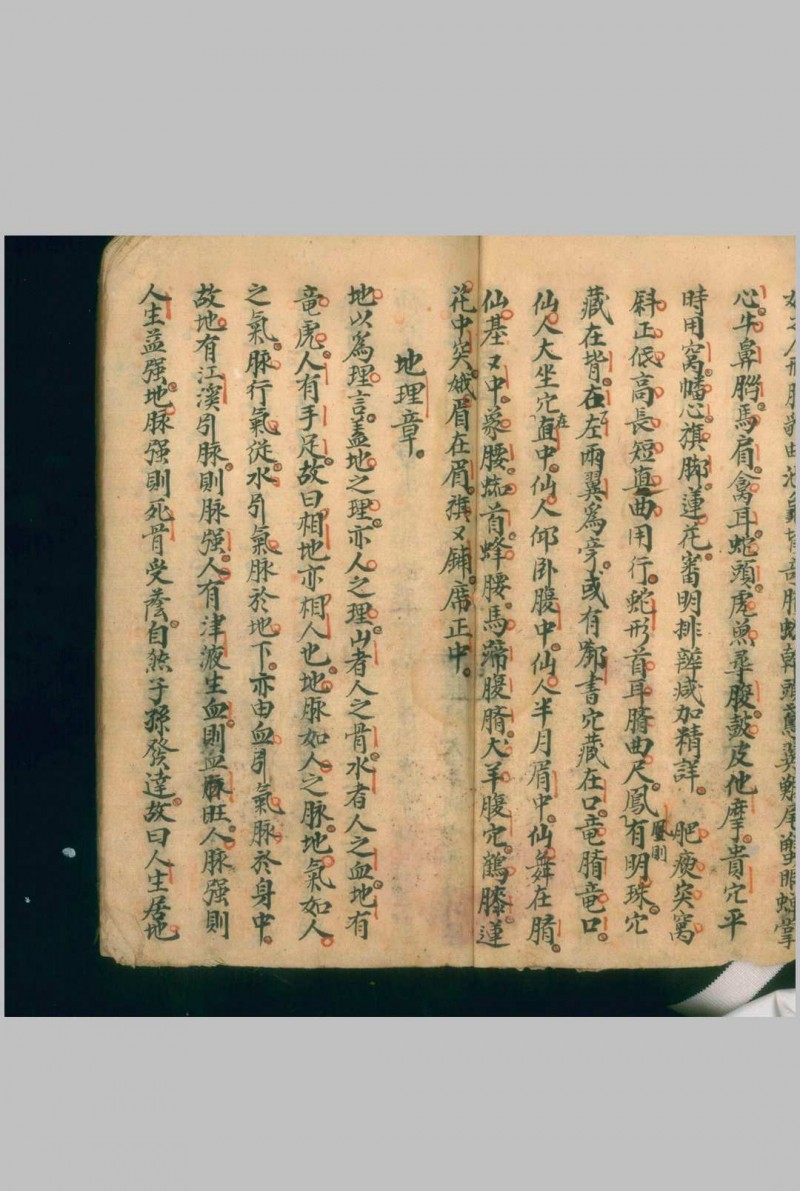 心牛鼻𦛨馬肩禽耳蛇頭虎魚尋腹皷皮他摩貴穴平
時用窩幡心旗脚蓮花審明排辨减加精詳 肥瘐突窩
斜正低高長短直曲用行蛇形首耳臍曲尺鳳有明珠穴
藏在揹在左兩翼爲旁或有書穴藏在口竜臍竜口
仙人大坐穴直中仙人仰卧腹中仙人半月肩中仙舞在臍
仙基又中象腰蜣首蜂腰馬蹄腹臍犬羊腹穴鶴膝蓮
花中突娥眉在眉旗又鋪席正中
地理章
地以爲理言盖地之理亦人之理山者人之骨水者人之血地有
竜虎人有手足故曰相地亦相人也地脉如人之脉地氣如人
之氣脉行氣從水引氣脉於地下亦由血引氣脉於身中
故地有江溪引脉則脉强人有津液生血則血脉旺人脉强則
人生益强地脉强則死骨受蔭自然子孫發達故曰人生居地